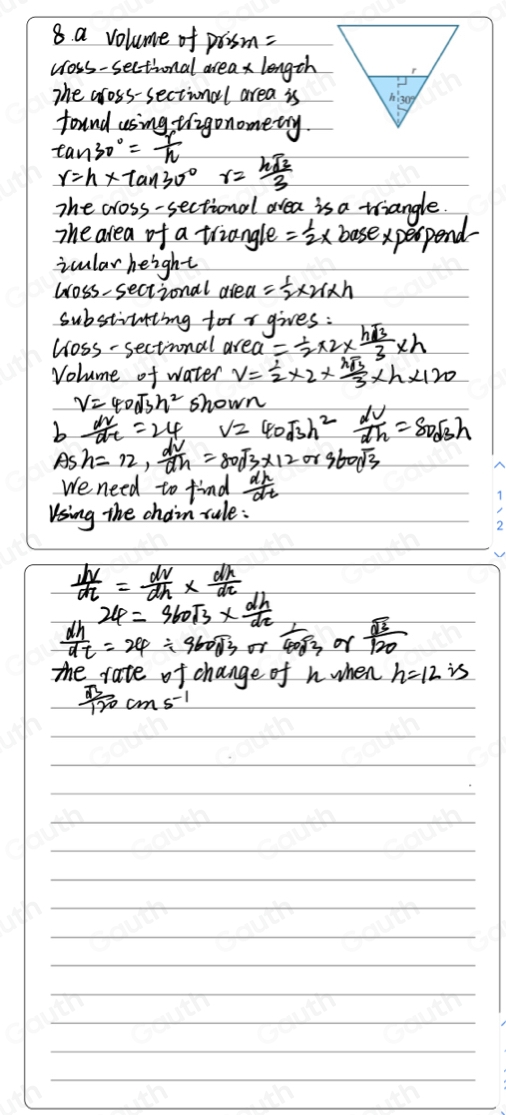 8.a Volume of prism =
cross-sectional area x length
The cross-sectional area is
found using trigonometry.
tan30° = r/h
r=h x tan30° r= h√3/3
The cross-sectional area is a triangle.
The area of a triangle = 1/2 x base x perpend-
icular height
Cross-sectional area = 1/2 x 2r x h
substituting for r gives:
Cross-sectional area = 1/2 x 2 x h√3/3 x h
Volume of water V = 1/2 x 2 x h√3/3 x h x 120
V = 40√3h² shown
b dv/dt = 24 V = 40√3h² dv/dh = 80√3h
As h = 12, dv/dh = 80√3 x 12 or 960√3
We need to find dh/dt
Using the chain rule:
r
h
30°
1
/
2
dv/dt = dv/dh x dh/dt
24 = 960√3 x dh/dt
dh/dt = 24 ÷ 960√3 or 1/40√3 or √3/120
The rate of change of h when h=12 is
√3/120 cm s⁻¹
Gauth